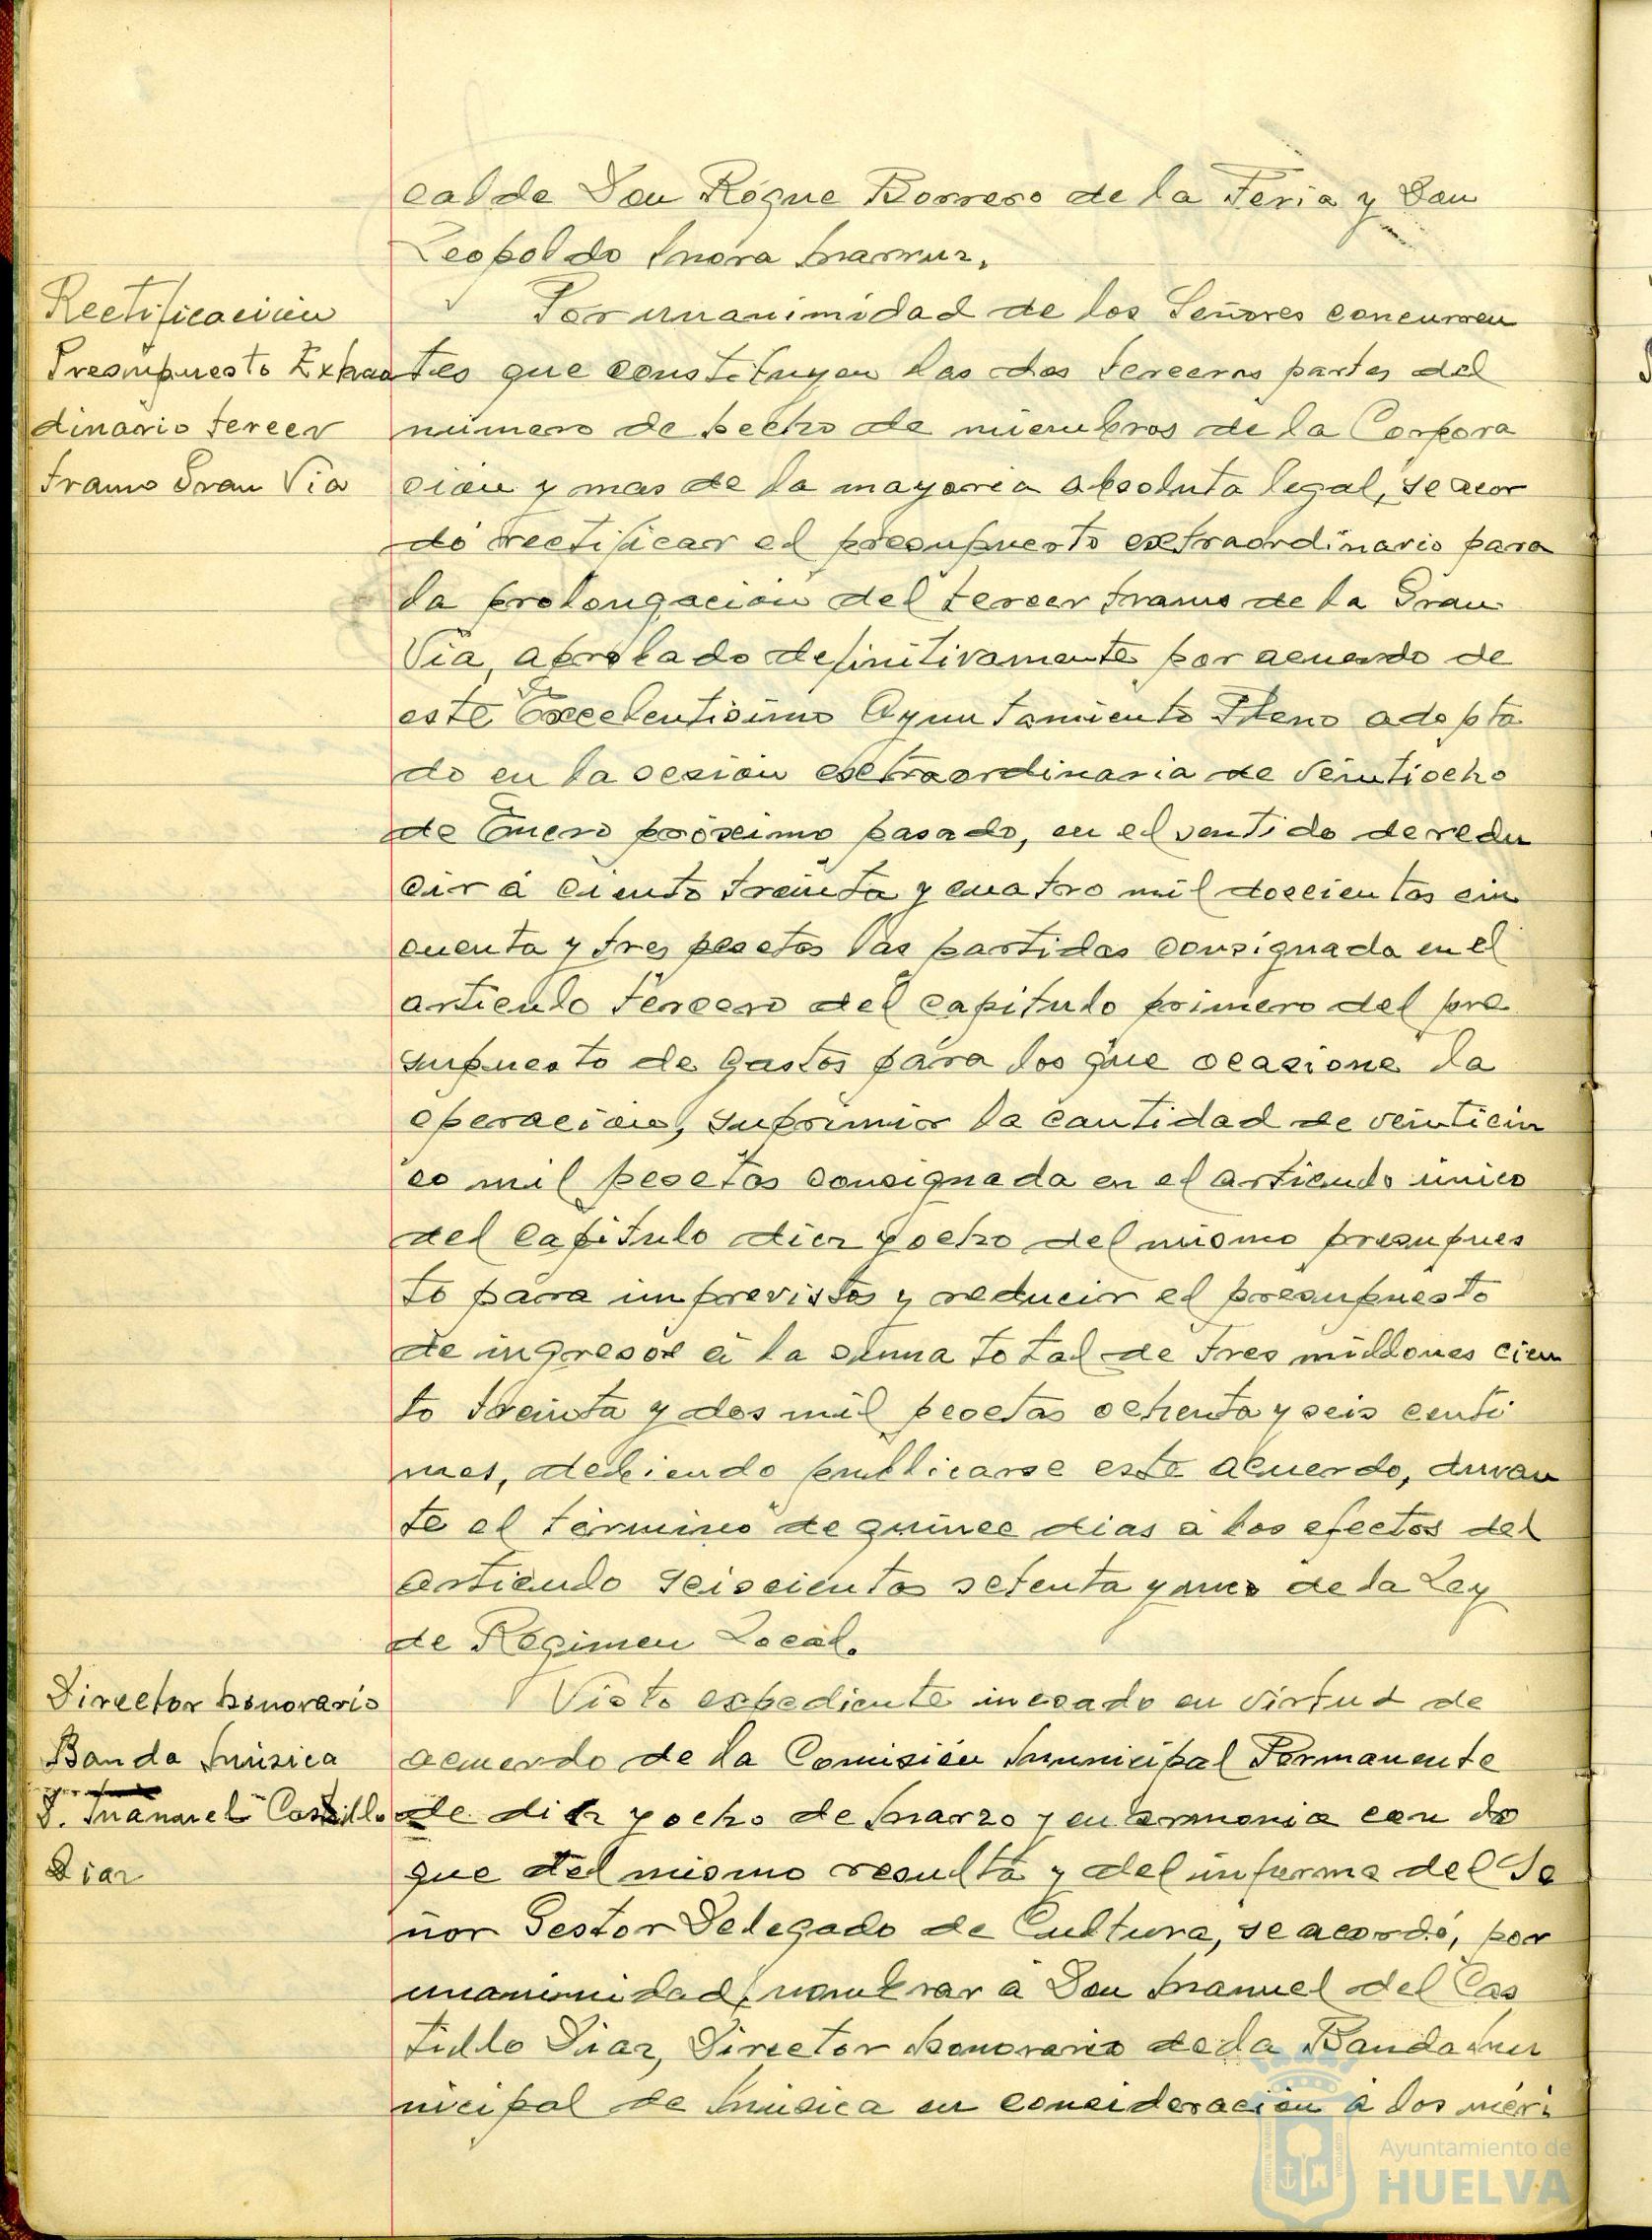 calde Don Roque Borrero de la Feria y Don
Leopoldo Mora
Rectificación
Presupuesto Extraor
dinario tercer
tramo Gran Vía
Por unanimidad de los Señores concurren
tes que constituyen las dos terceras partes del
número de hecho de miembros de la Corpora
ción y mas de la mayoría absoluta legal, se acor
dó rectificar el presupuesto extraordinario para
la prolongación del tercer tramo de la Gran
Vía, aprobado definitivamente por acuerdo de
este Excelentísimo Ayuntamiento Pleno adopta
do en la sesión extraordinaria de veintiocho
de Enero próximo pasado, en el sentido de redu
cir á ciento treinta y cuatro mil doscientas cin
cuenta y tres pesetas las partidas consignada en el
artículo tercero del capítulo primero del pre
supuesto de gastos para los que ocasione la
operación, suprimir la cantidad de veinticin
co mil pesetas consignada en el artículo único
del capítulo diez y ocho del mismo presupues
to para imprevistos y reducir el presupuesto
de ingresos á la suma total de tres millones cien
to treinta y dos mil pesetas ochenta y seis cénti
mos, debiendo publicarse este acuerdo, duran
te el término de quince dias á los efectos del
artículo seiscientos setenta y uno de la Ley
de Régimen Local.
Director honorario
Banda música
D. Manuel Castillo
Diaz
Visto expediente incoado en virtud de
acuerdo de la Comisión Municipal Permanente
de diez y ocho de Marzo y en armonia con lo
que del mismo resulta y del informe del Se
ñor Gestor Delegado de Cultura, se acordó, por
unanimidad, nombrar á Don Manuel del Cas
tillo Diaz, Director honorario de la Banda Mu
nicipal de Música en consideración á los méri
Ayuntamiento de
HUELVA